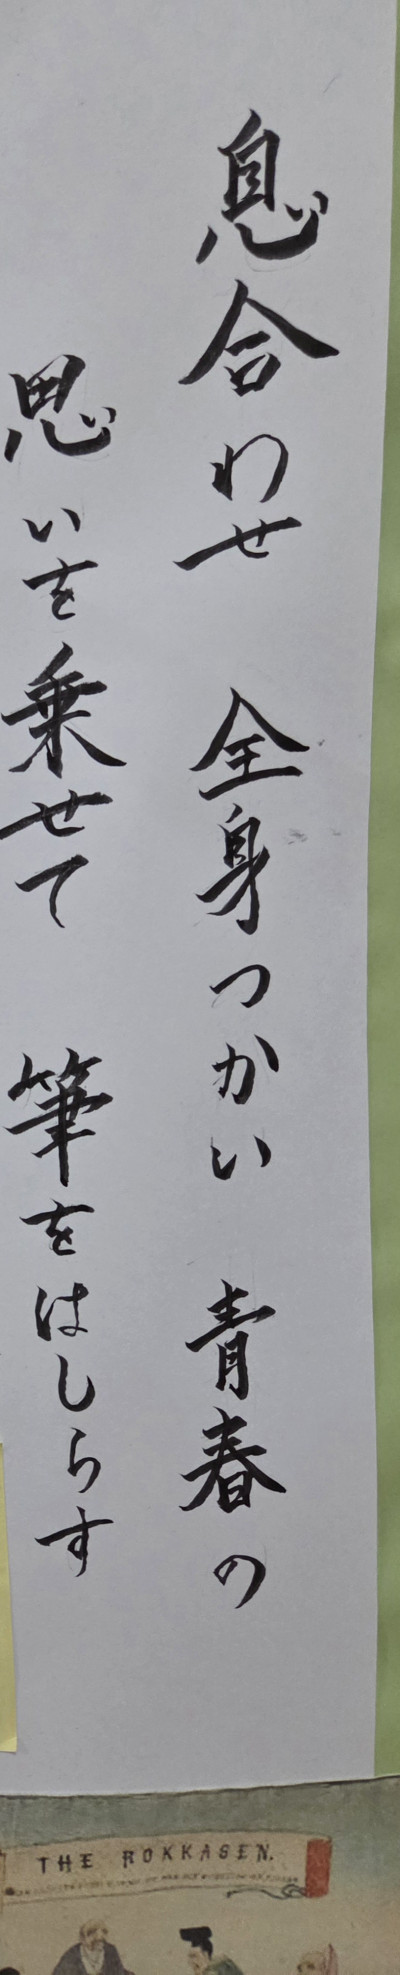 息合わせ　全身つかい　青春の
思いを乗せて　筆をはしらす
THE ROKKASEN.